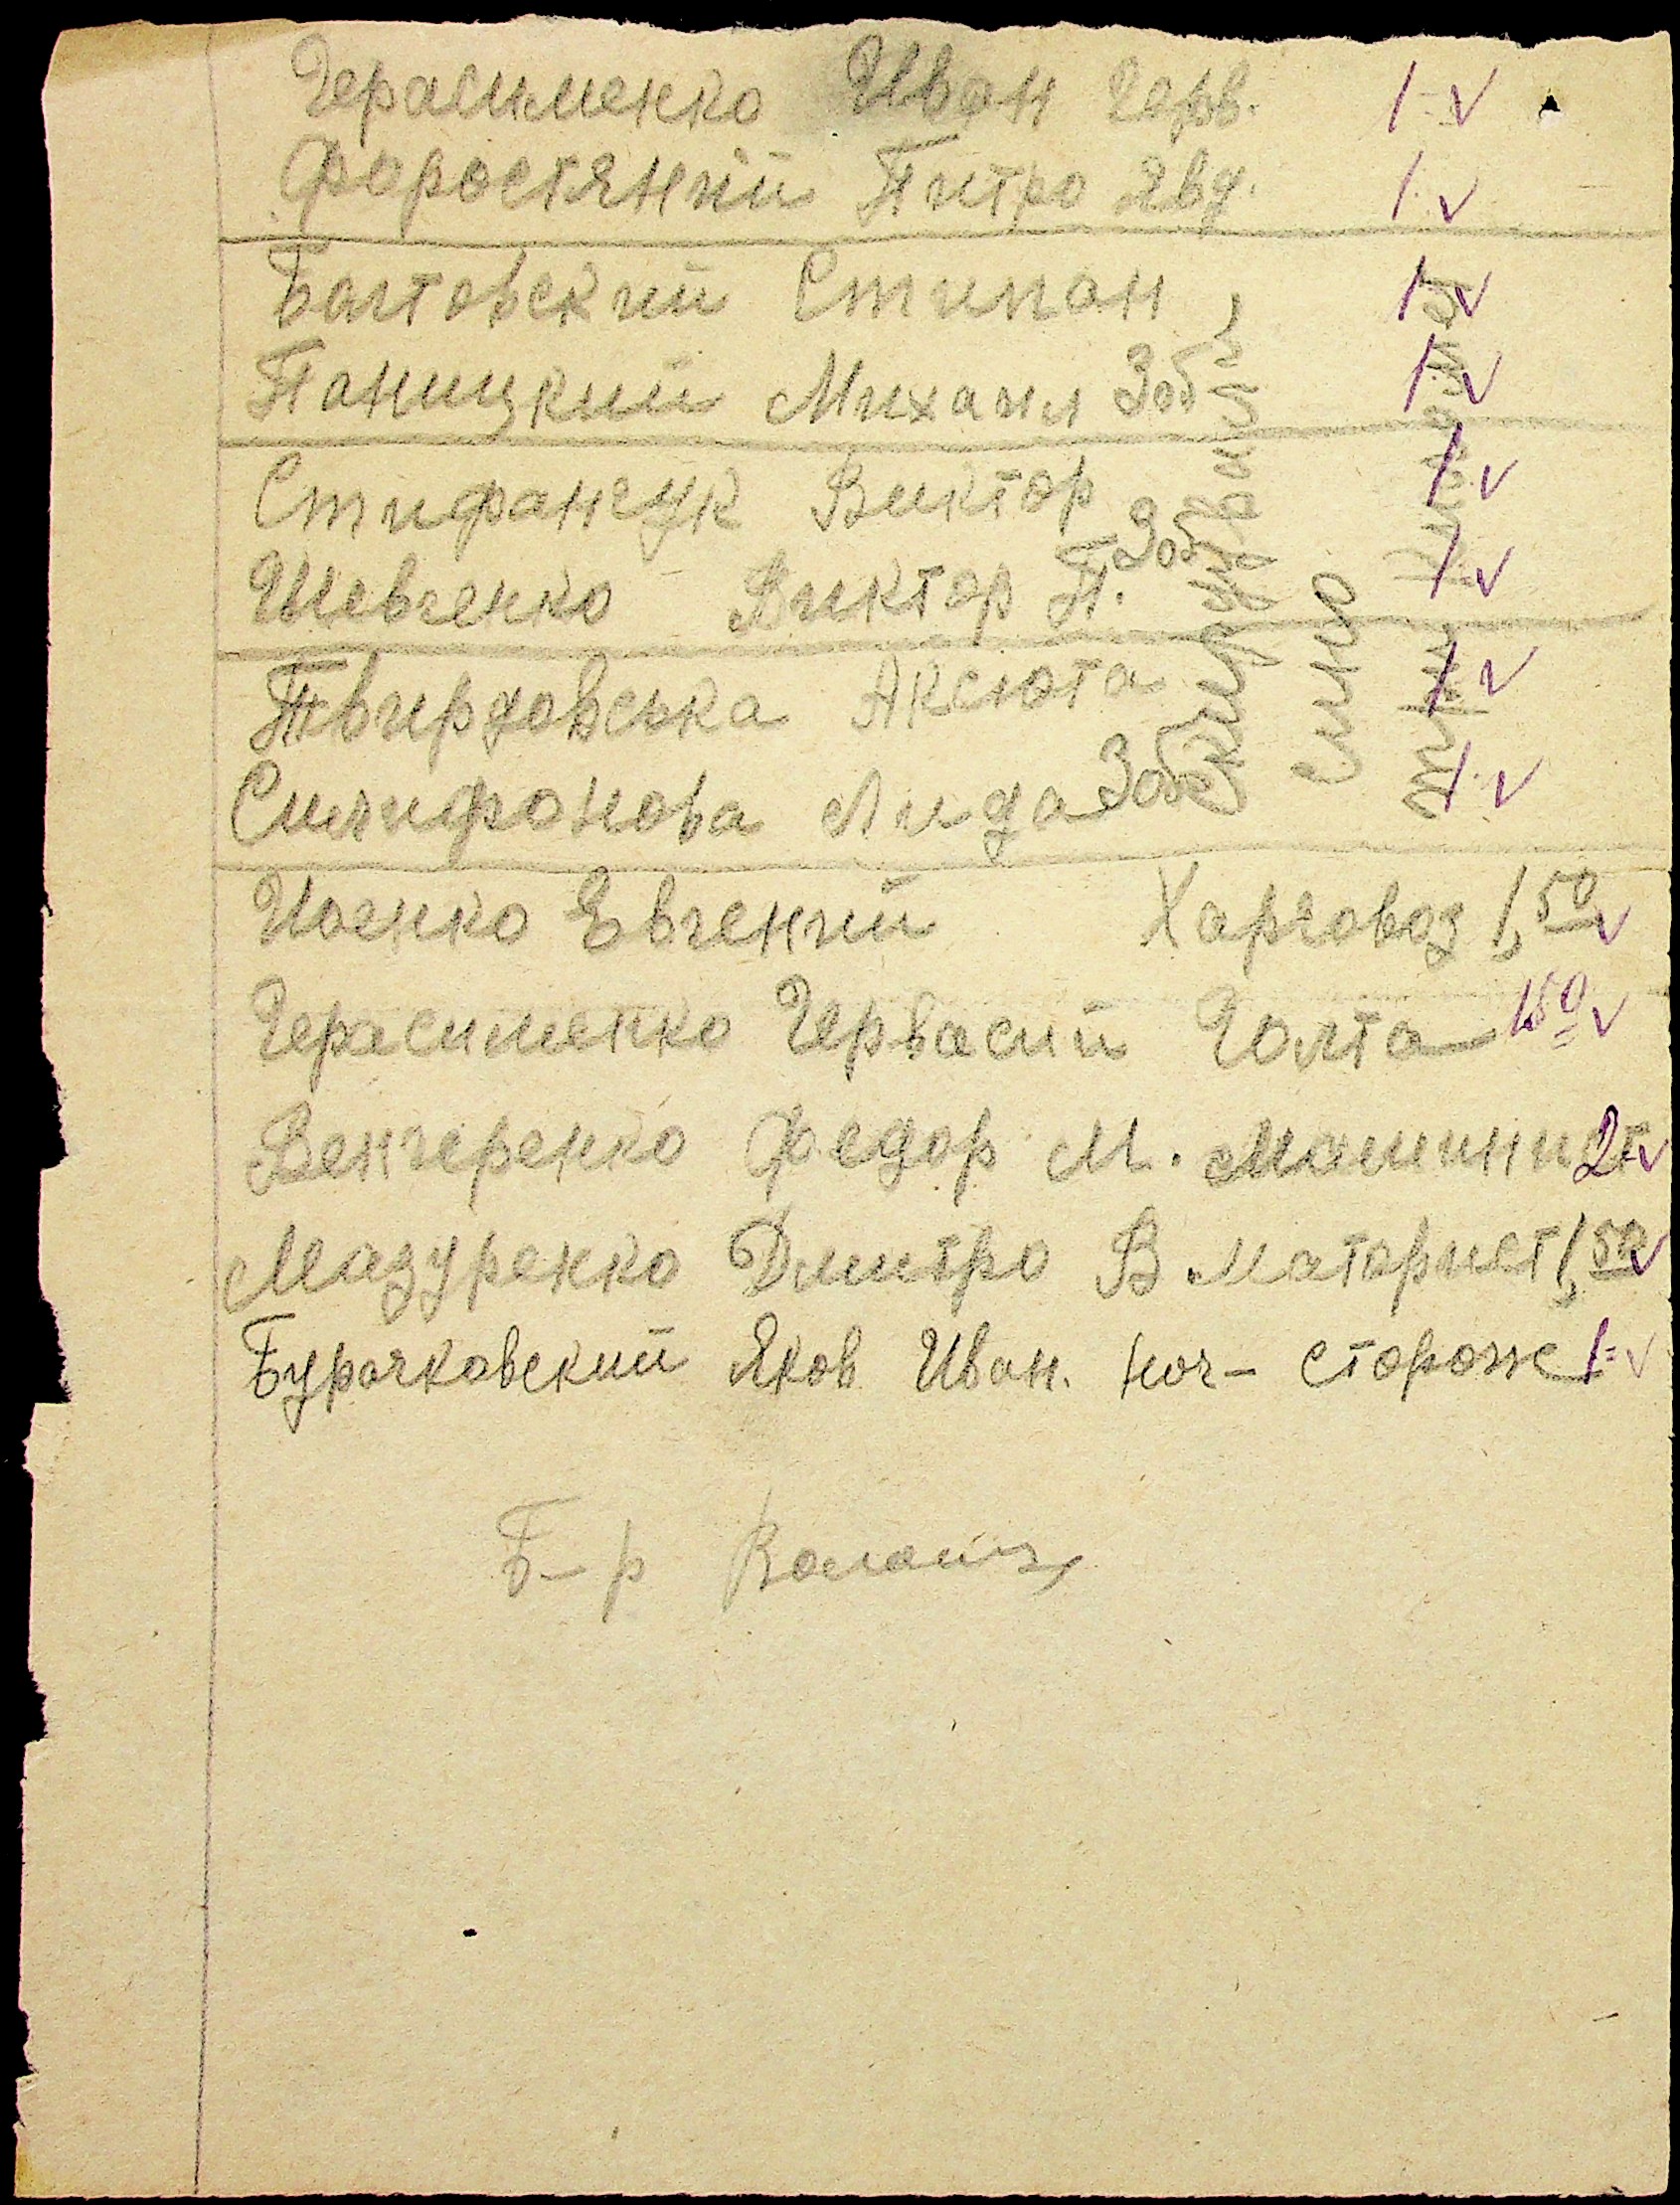 Герасименко Иван Герв. 1= v
Форостяний Питро Явд. 1= v
Балтовский Стипан 1= v
Паницкий Михаил Зоб 1= v
Стифанчук Виктор 1= v
Шевченко Виктор П. Зоб 1= v
Твирдовська Аксюта 1= v
Симифонова Лида Зоб 1= v
сино
Ивенко Евгений Харчовоз 1,50 v
Герасименко Гервасий Галта 1,50 v
Венгеренко Федор М. Машинист 2= v
Мазуренко Дмитро В моторист 1,50 v
Бурачковский Яков Иван. ноч- сторож 1= v
Б-р